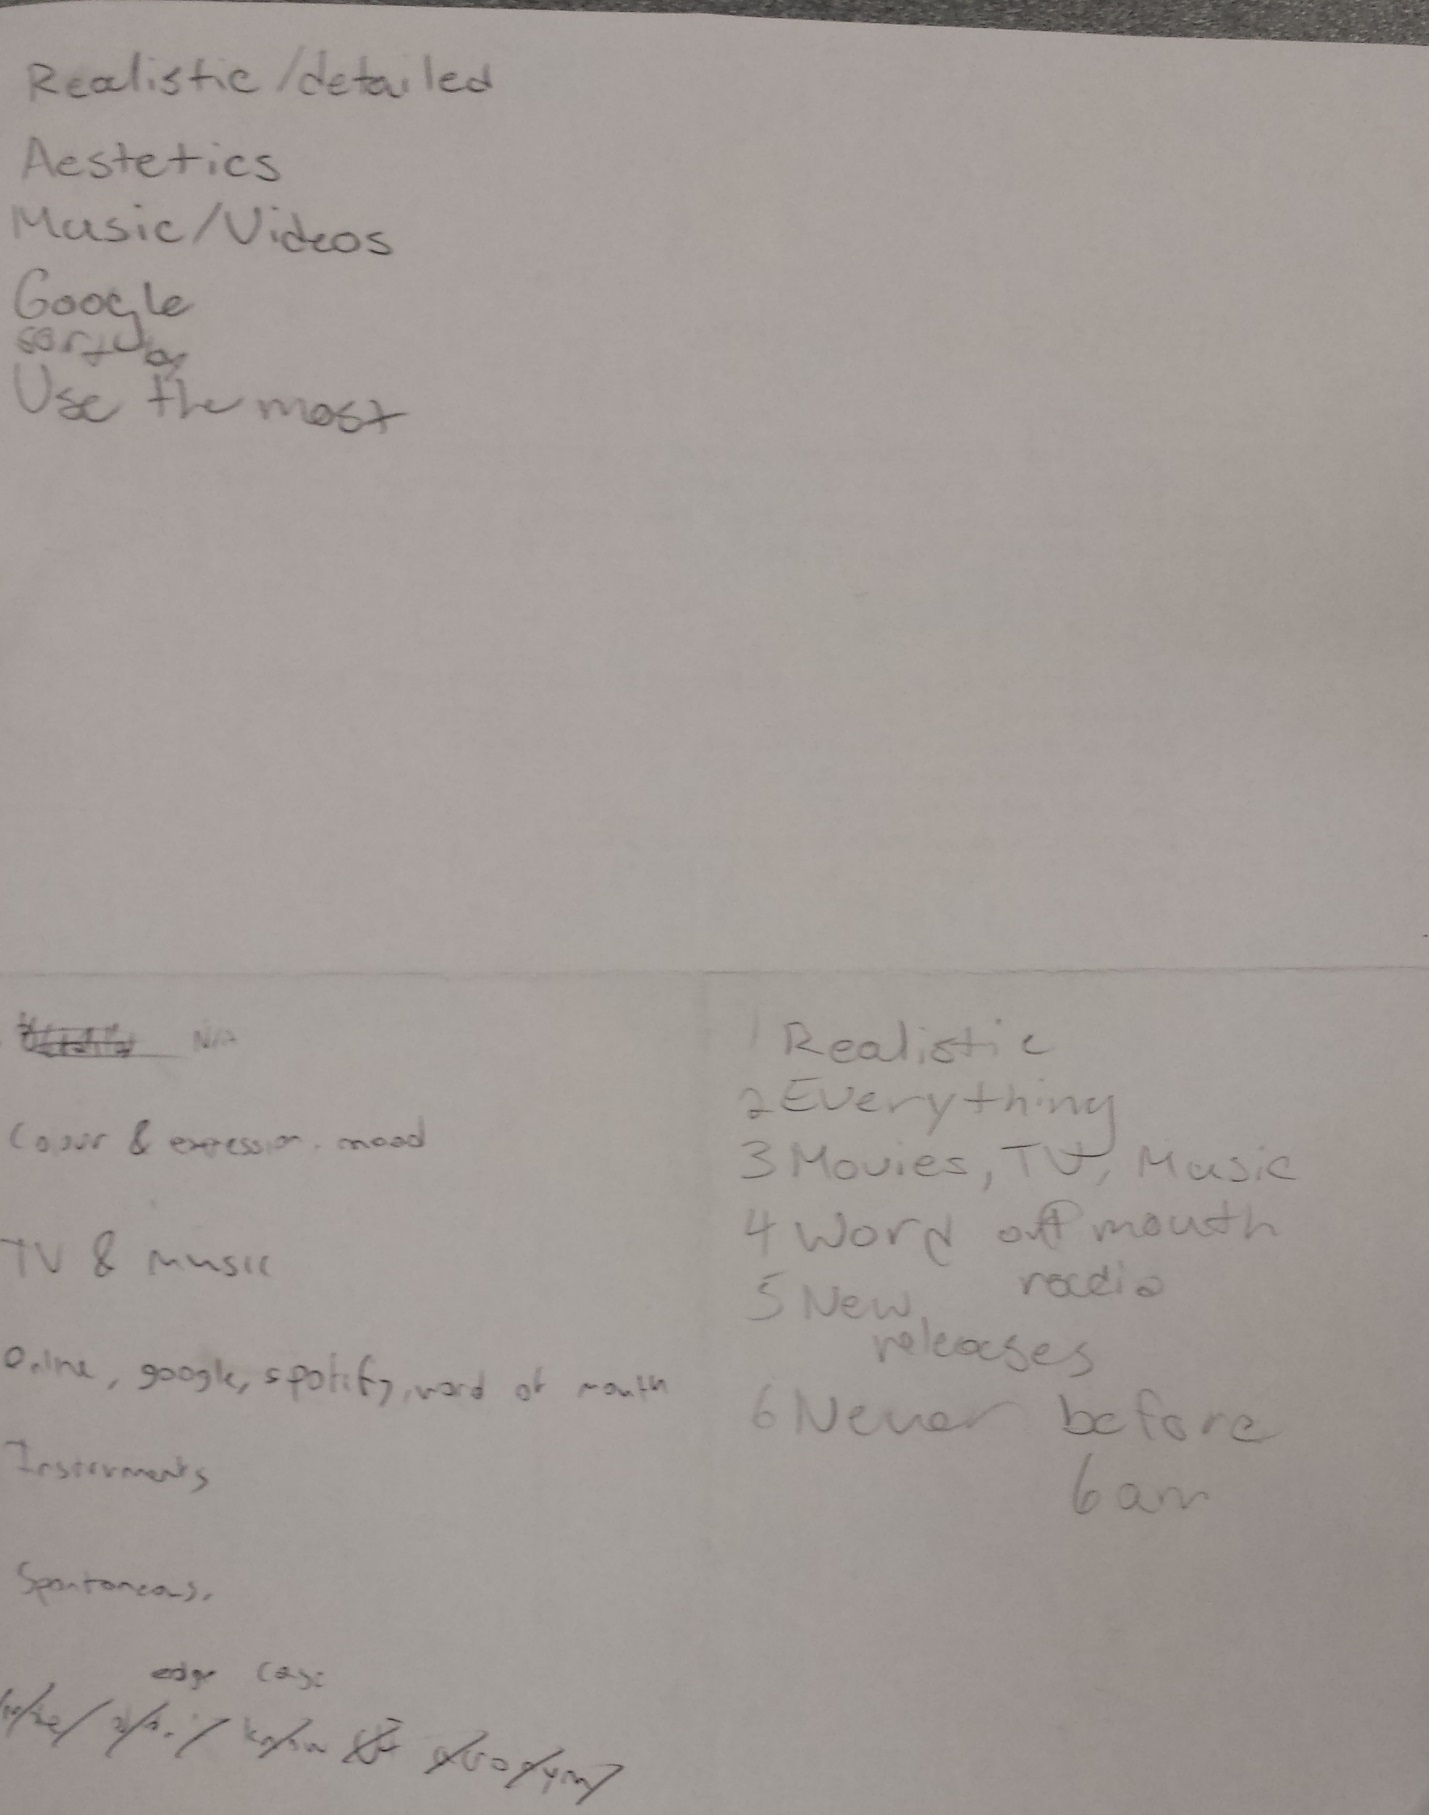 Realistic/detailed
Aestetics
Music/Videos
Google
sort by
Use the most
N/A
Colour & expression. mood
TV & music
Online, google, spotify, word of mouth
Insterments
Spontaneous.
edge case
1 Realistic
2 Everything
3 Movies, TV, Music
4 Word off mouth
radio
5 New
releases
6 Never before
6am